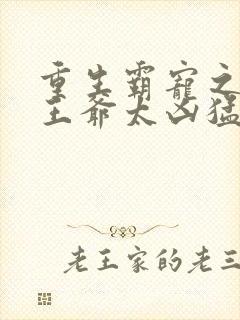 重生霸寵之
王爺太凶猛
老王家的老三